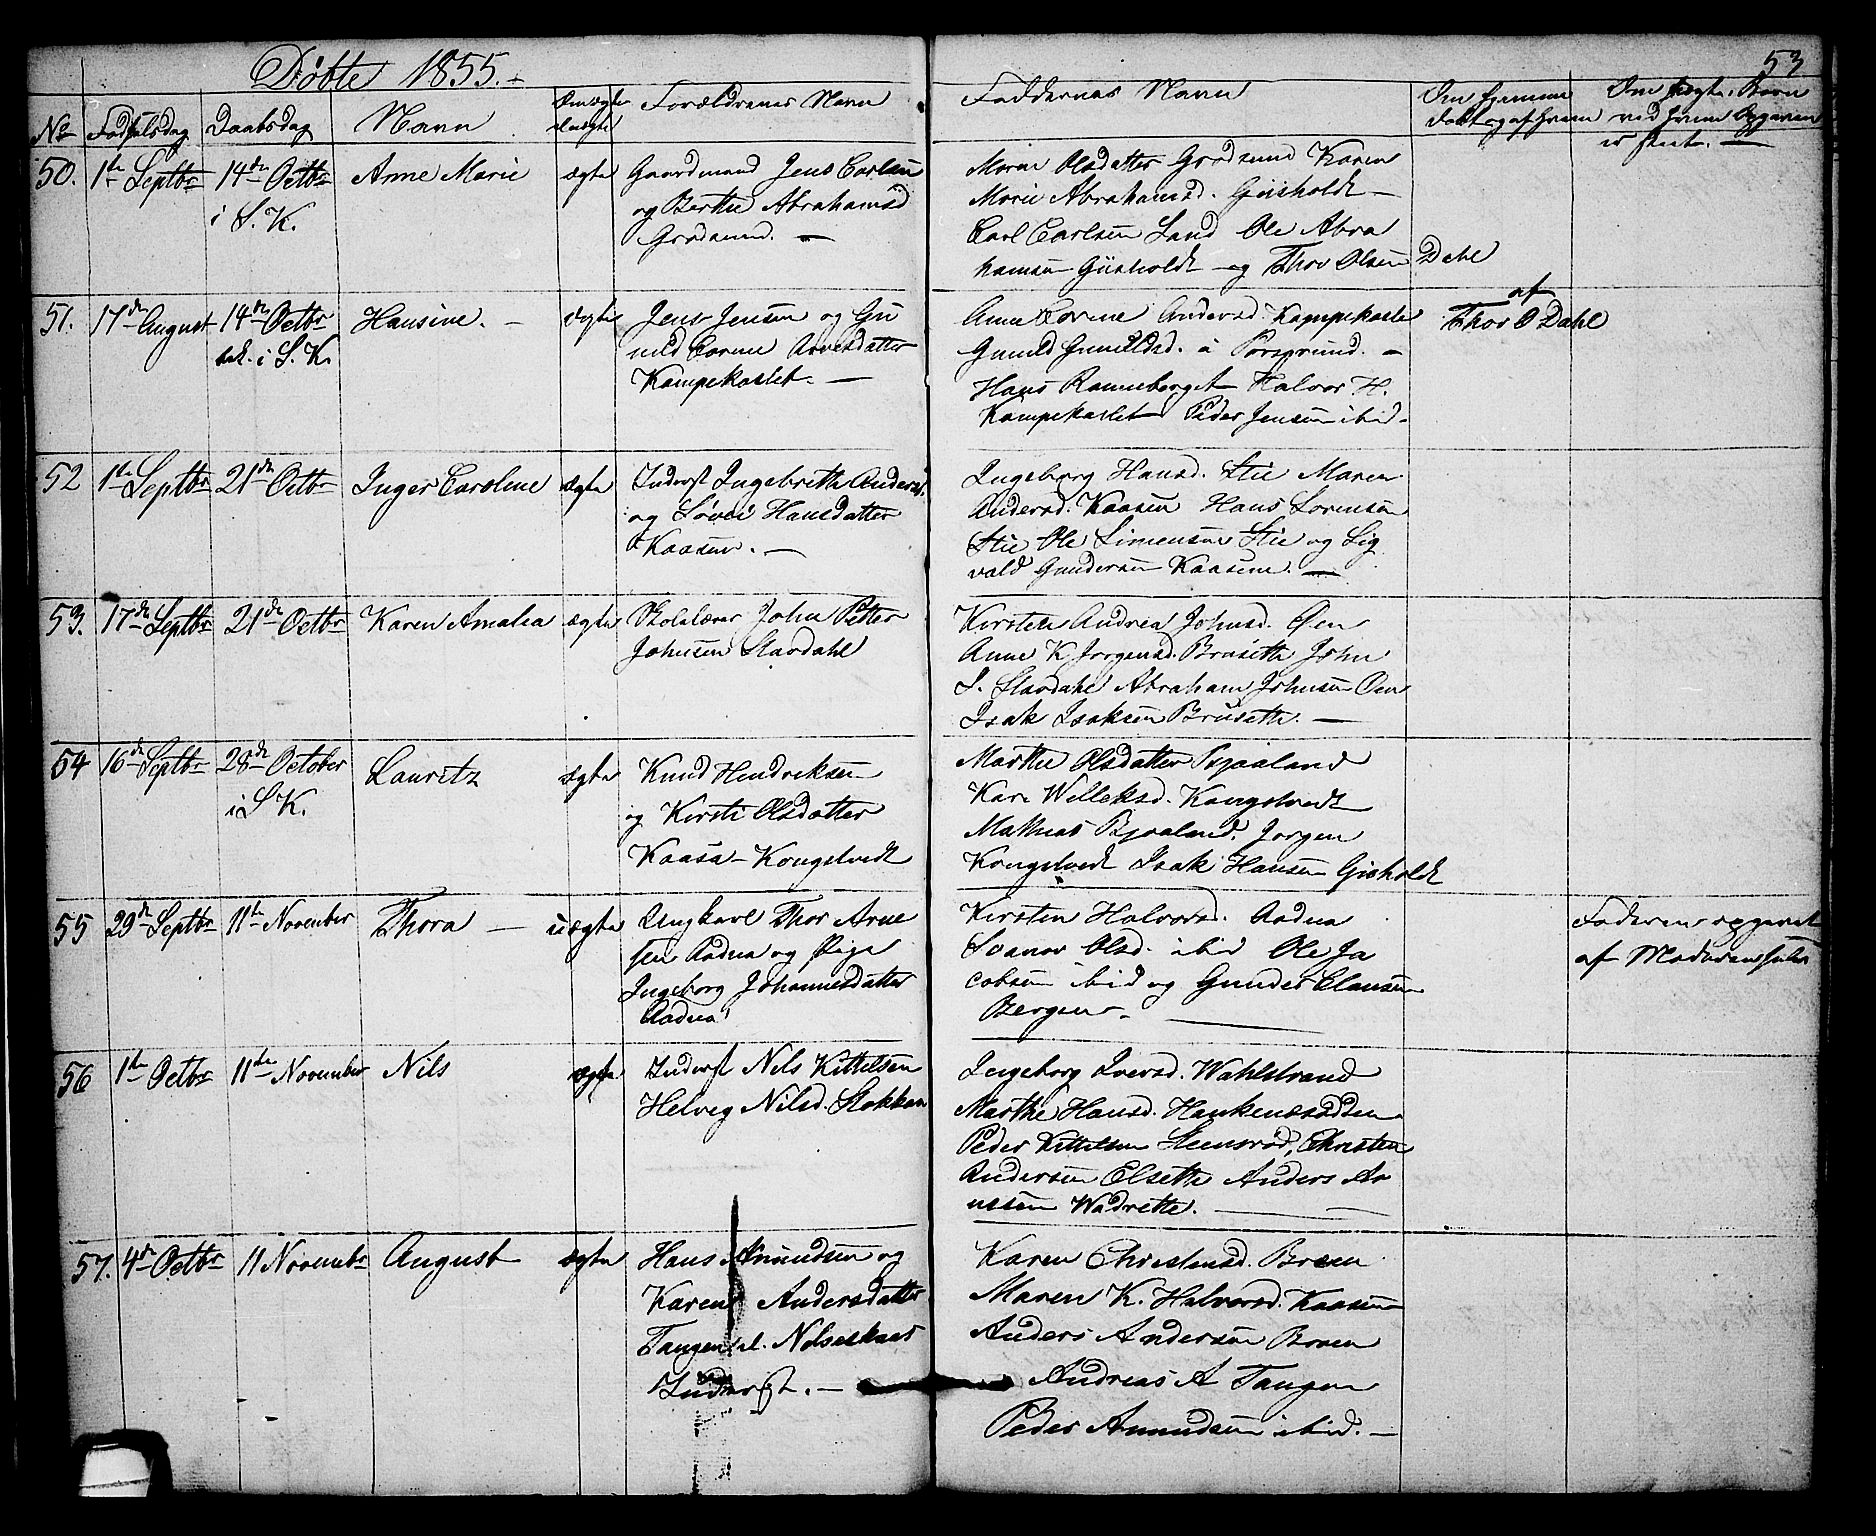 Døbte 1855.
53
No Fødselsdag Daabsdag Navn Om ægte Forældrenes Navn
uægte
Faddernes Navn
Om hjemme
døbt og af hvem
Om uægte Barn
ved hvem Opgaven
er skeet. —
50. 1te Septbr 14de Octbr Anne Marie ægte Gaardmand Jens Carlsen
i S. K. og Berthe Abrahamsd
Grødsund. —
Maren Olsdatter Grødsund Karen
Marie Abrahamsd. Gisholdt —
Carl Carlsen Sand Ole Abra
hamsen Gisholdt og Thor Olsen Dahl
51. 17de August 14de Octbr Hansine. — ægte Jens Jensen og Gu
bek. i S. K. nild Carine Arnesdatter
Kampekastet. —
Anne Andersd. Kampekaste
Gunild Gunildsd. a Porsgrund. —
Hans Ramneberget Halvor H.
Kampekastet Peder Jensen ibid.
af
Thor O Dahl
52 1te Septbr 21de Octbr Inger Caroline ægte Inderst Ingebreth Anders.
og Søvei Hansdatter
Kaasen. —
Ingeborg Hansd. Stie Maren
Andersd. Kaasen Hans Sorensen
Stie Ole Simensen Stie og Sig
vald Gundersen Kaasene. —
53. 17de Septbr 21de Octbr Karen Amalia ægte Skolelærer John Petter
Johnsen Slavdahl
Kirsten Andrea Johnsd. Øen
Anne K Jorgensd. Brusette John
J. Slavdahl Abraham Johnsen Øen
Isak Isaksen Brusette. —
54 16de Septbr 28de October Lauritz ægte Knud Hendriksen
i S K. og Kirsti Olsdatter
Kaasa - Kongetvedt
Marthe Olsdatter Bjaaland
Kari Willeksd. Kongetvedt
Mathias Bjaaland. Jorgen
Kongetvedt Isak Hansen Gisholdt
55 29de Septbr 11te November Thora — uægte Ungkarl Thor Arne
sen Aadna og Pige
Ingeborg Johannesdatter
Aadna
Kirsten Halvorsd. Aadna
Olsd. ibid Ole Ja
cobsen ibid og Gunder Clausen
Bergene. —
Faderen opgivet
af Moderen selv
56 1te Octbr 11te November Nils ægte Inderst Nils Kittelsen
Helvig Nilsd. Stokken
Ingeborg Iversd. Wahlstrand
Marthe Hansd. Haukenæsodden
Peder Kittelsen Steensrød, Christen
Andersen Elsette Anders An
Wadrette. —
57. 4de Octbr 11 Novembr August ægte Hans Amundsen og
Karen Andersdatter
Tangen el. Nilseskaas
Inderst. —
Karen Christensd. Broen
Maren K. Halvorsd. Kaasene
Anders Andersen Broen
Andreas A Tangen
Peder Amundsen ibid. —